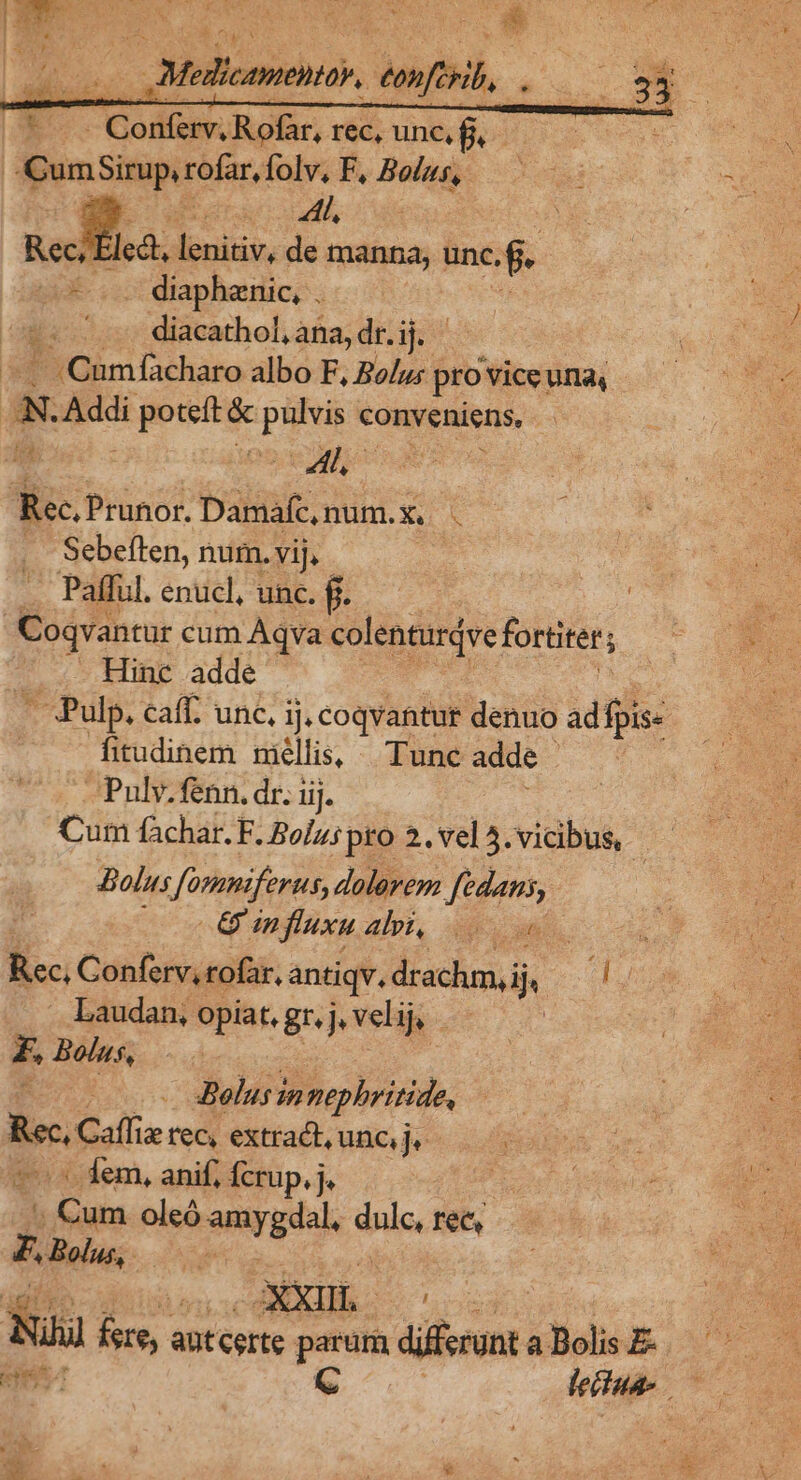 Medicamentor, conſcrib, . 33
Conſerv, Roſar, rec, unc, ß,
Cum Sirup, roſar, ſolv, F, Bolus,
Al,
Rec, Elect, lenitiv, de manna, unc. ß,
diaphænic, .
diacathol, ana, dr. ij.
Cum ſacharo albo F, Bolus pro vice una,
N. Addi poteſt & pulvis conveniens,
Al,
Rec, Prunor. Damaſc, num. x,
Sebeſten, num. vij,
Paſſul. enucl, unc. ß.
Coqvantur cum Aqva colenturqve fortiter;
Hinc adde
Pulp, caſſ. unc, ij, coqvantur denuo ad ſpis-
ſitudinem mellis, Tunc adde
Pulv. ſenn. dr. iij.
Cum ſachar. F. Bolus pro 2. vel 3. vicibus,
Bolus ſomniferus, dolorem ſedans,
& influxu alvi,
Rec, Conſerv, roſar, antiqv, drachm, ij,
Laudan, opiat, gr, j, vel ij,
F, Bolus,
Bolus in nephritide,
Rec, Caſſiæ rec, extract, unc, j,
ſem, aniſ, ſcrup, j,
Cum oleó amygdal, dulc, rec,
F, Bolus,
XXIII,
Nihil fere, aut certe parum differunt a Bolis E-
C lectua-